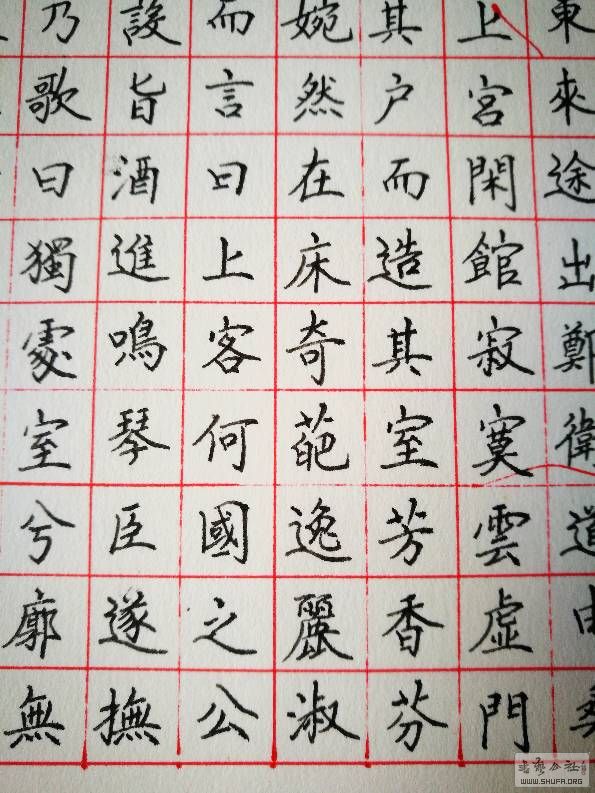 東來途出鄭衛道由桑
上宮閑館寂寞雲虚門
其户而造其室芳香芬
婉然在床奇葩逸麗淑
而言曰上客何國之公
設旨酒進鳴琴臣遂撫
乃歌曰獨處室兮廓無
WWW.SHUFA.ORG